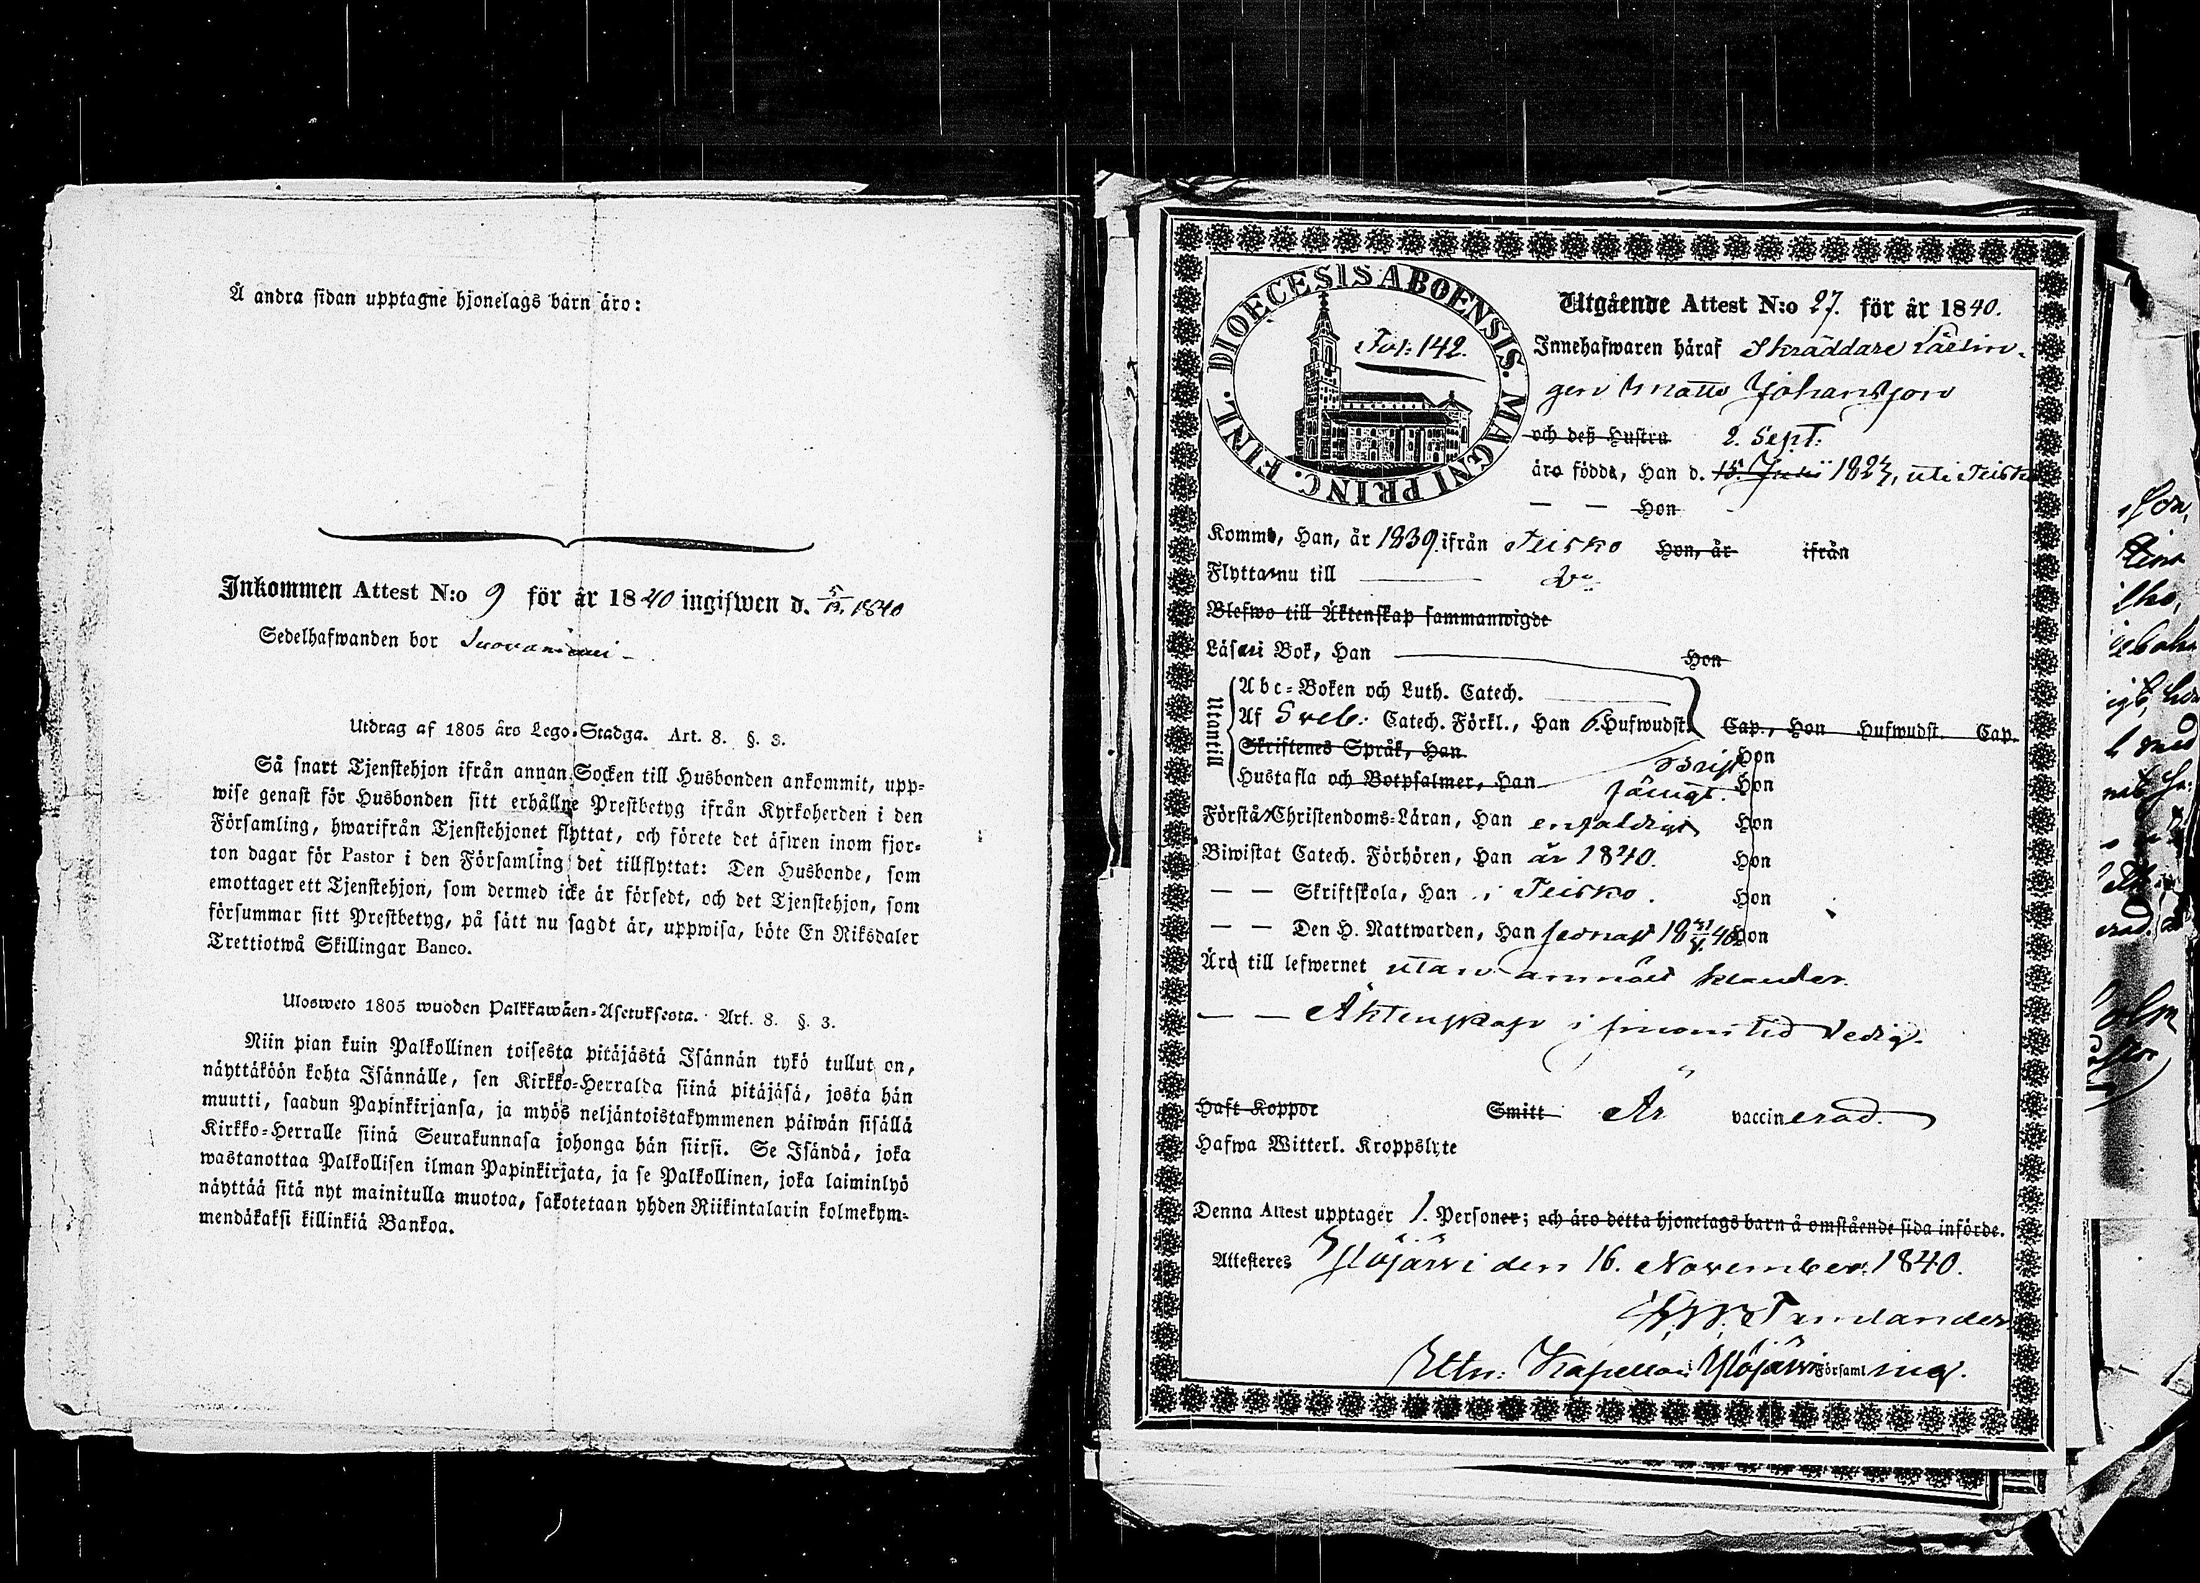 Å andra sidan upptagne hjonelags barn äro:
Inkommen Attest N:o 9 för år 1840 ingifwen d. 5/12. 1840
Sedelhafwanden bor Suovaniemi
Utdrag af 1805 års Lego-Stadga. Art. 8. §. 3.
Så snart Tjenstehjon ifrån annan Socken till Husbonden ankommit, upp-
wise genast för Husbonden sitt erhållne Prestbetyg ifrån Kyrkoherden i den
Församling, hwarifrån Tjenstehjonet flyttat, och förete det äfwen inom fjor-
ton dagar för Pastor i den Församling det tillflyttat: Den Husbonde, som
emottager ett Tjenstehjon, som dermed icke är försedt, och det Tjenstehjon, som
försummar sitt Prestbetyg, på sätt nu sagdt är, uppwisa, böte En Riksdaler
Trettiotwå Skillingar Banco.
Ulosweto 1805 wuoden Palkkawäen-Asetuksesta. Art. 8. §. 3.
Niin pian kuin Palkollinen toisesta pitäjästä Isännän tykö tullut on,
näyttäköön kohta Isännälle, sen Kirkko-Herralda siinä pitäjäsä, josta hän
muutti, saadun Papinkirjansa, ja myös neljäntoistakymmenen päiwän sisällä
Kirkko-Herralle siinä Seurakunnasa johonga hän siirsi. Se Isändä, joka
wastanottaa Palkollisen ilman Papinkirjata, ja se Palkollinen, joka laiminlyö
näyttää sitä nyt mainitulla muotoa, sakotetaan yhden Riikintalarin kolmekym-
mendäkaksi killinkiä Bankoa.
DIOECESIS ABOENSIS. MAGNI PRINC. FINL.
Fol: 142.
Utgående Attest N:o 27. för år 1840.
Innehafwaren häraf Skräddare Lärlin-
gen Matts Johansson
och deß Hustru 2. Sept:
äro födde, Han d. 15. Juni 1823, uti Teisko
— — Hon
Komme, Han, år 1839. ifrån Teisko Hon, år ifrån
Flytta nu till
Blefwo till Äktenskap sammanwigde
Läsa i Bok, Han Hon
Utantill
Abc-Boken och Luth. Catech.
Af Sveb: Catech. Förkl., Han 6. Hufwudst. Cap., Hon Hufwudst. Cap.
Skriftenes Språk, Han Hon
Hustafla och Botpsalmer, Han Hon
Förstå Christendoms-Läran, Han enfaldigt Hon
Biwistat Catech. Förhören, Han år 1840. Hon
— — Skriftskola, Han i Teisko. Hon
— — Den H. Nattwarden, Han sednast 18 40. Hon
Äro till lefwernet utan anmäld klander.
— — Äktenskap i sinom tid ledig.
Haft Koppor Smitt Är vaccinerad.
Hafwa Witterl. Kroppslyte
Denna Attest upptager 1. Personer; och äro detta hjonelags barn å omstående sida införde.
Attesteres Ylöjärvi den 16. November 1840.
Ylöjärvi Församling.